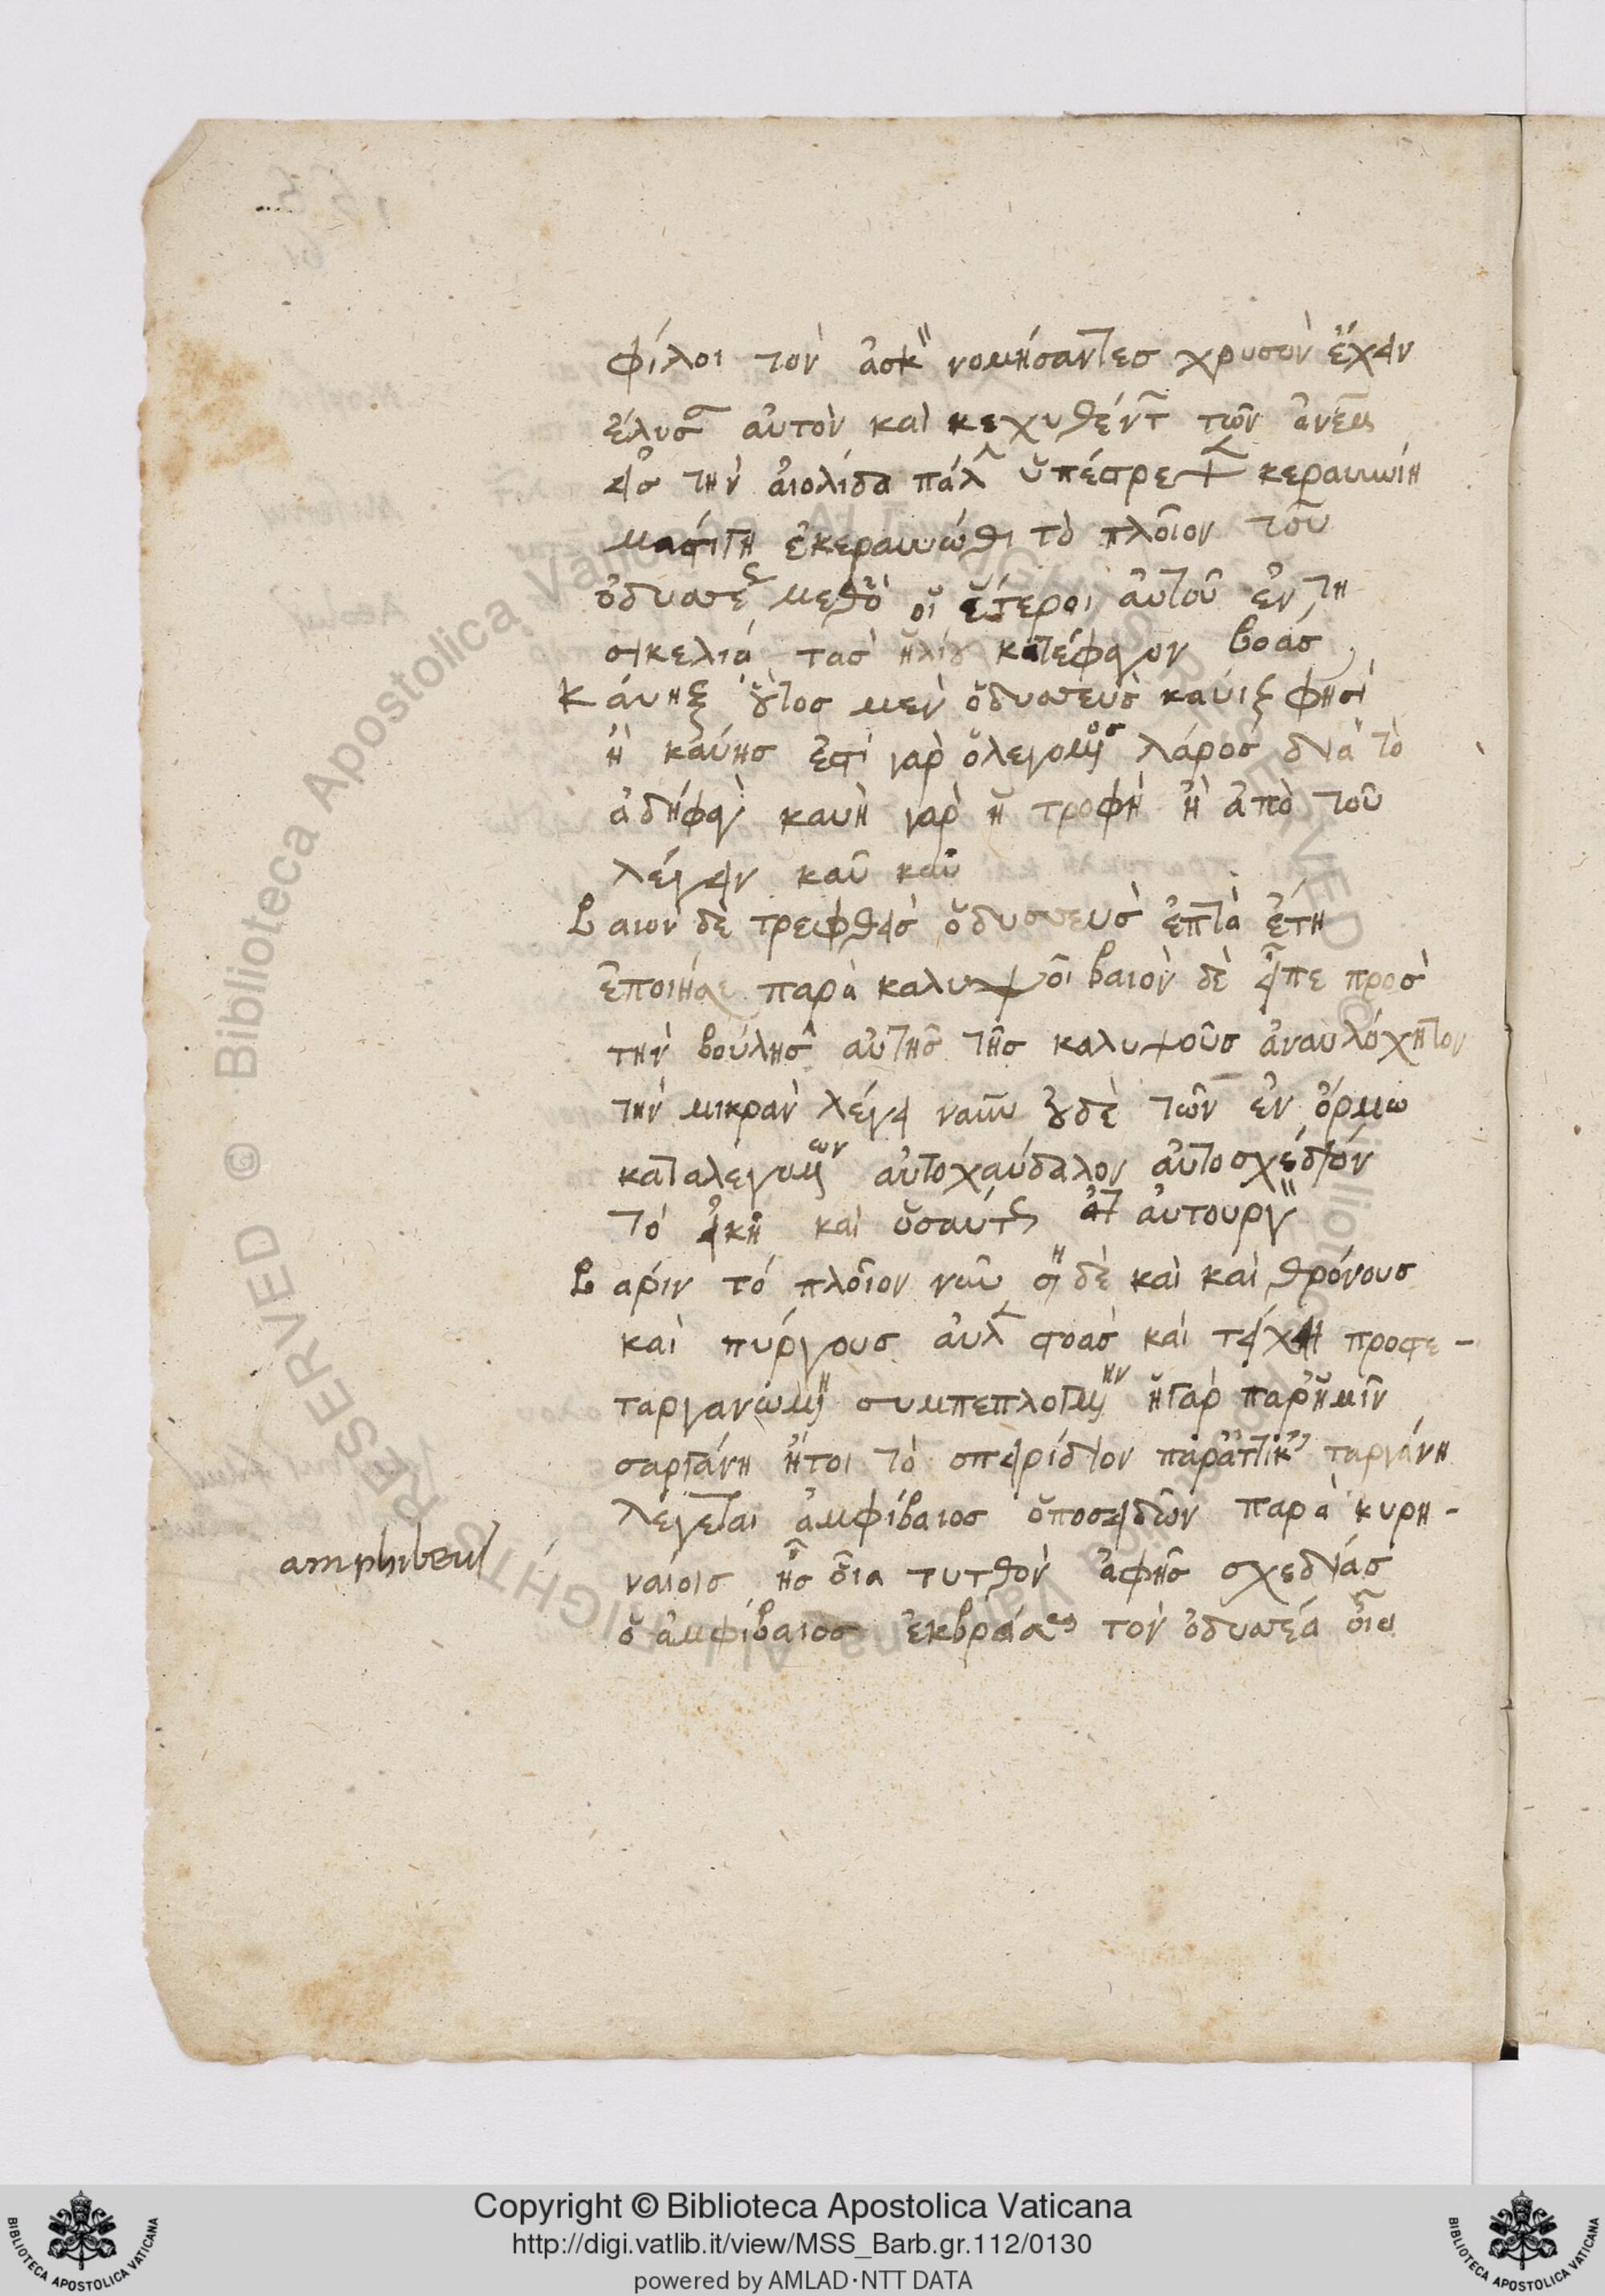 φίλοι τὸν ἀσκ νομήσαντες χρυσὸν ἔχειν
ἔλυσ αὐτὸν καὶ κεχυθέντ τῶν ἀνέμ
εἰς τὴν αἰολίδα πάλ ὑπέστρεψ κεραυνίη
μάστιγη ἐκεραυνώθη τὸ πλοῖον τοῦ
ὀδυσσέ μεθὸ οἱ ἕτεροι αὐτοῦ ἐν τη
σικελιά τὰς ἡλίου κατέφαγον βοάς
Κ άυηξ οὗτος μὲν ὀδυσσεὺς καύιξ φησὶ
ἢ καύης ἐστὶ γὰρ ὁ λεγομος λάρος διὰ τὸ
ἀδηφαγ καυὴ γὰρ ἡ τροφὴ ἢ ἀπὸ τοῦ
λέγειν καῦ καῦ
β αιον δὲ τρεφθεὶς ὀδυσσευς ἑπτὰ ἔτη
ἐποιήσε παρὰ καλυψοῖ βαιὸν δὲ εἶπε πρὸς
τὴν βούλησ αὐτῆς τῆς καλυψοῦς ἀναυλόχητον
τὴν μικρὰν λέγει ναῦν οὐδὲ τῶν ἐν ὅρμω
καταλεγομων αὐτοχαύδαλον αὐτοσχέδιον
τὸ εἰκῆ καὶ ὡσαύτ αὐτουργ
β άριν τὸ πλοῖον νῦν ση δὲ καὶ καὶ θρόνους
καὶ πύργους αὐλ στοὰς καὶ τείχη προσε-
ταργανώμη συμπεπλογμην ἡ γὰρ παρ ἡμῖν
σαργάνη ἤτοι τὸ σπειρίδιον παρ ἀττικ ταργάνη
λέγεται ἀμφίβαιος ὁ ποσειδῶν παρὰ κυρη-
amphibeus
ναίοις ἧς οἷα τυτθὸν ἀφῆς σχεδίας
ὁ ἀμφίβαιος ἐκβράσει τὸν ὀδυσσέα οἷα
Copyright © Biblioteca Apostolica Vaticana
http://digi.vatlib.it/view/MSS_Barb.gr.112/0130
powered by AMLAD·NTT DATA
BIBLIOTECA APOSTOLICA VATICANA
BIBLIOTECA APOSTOLICA VATICANA